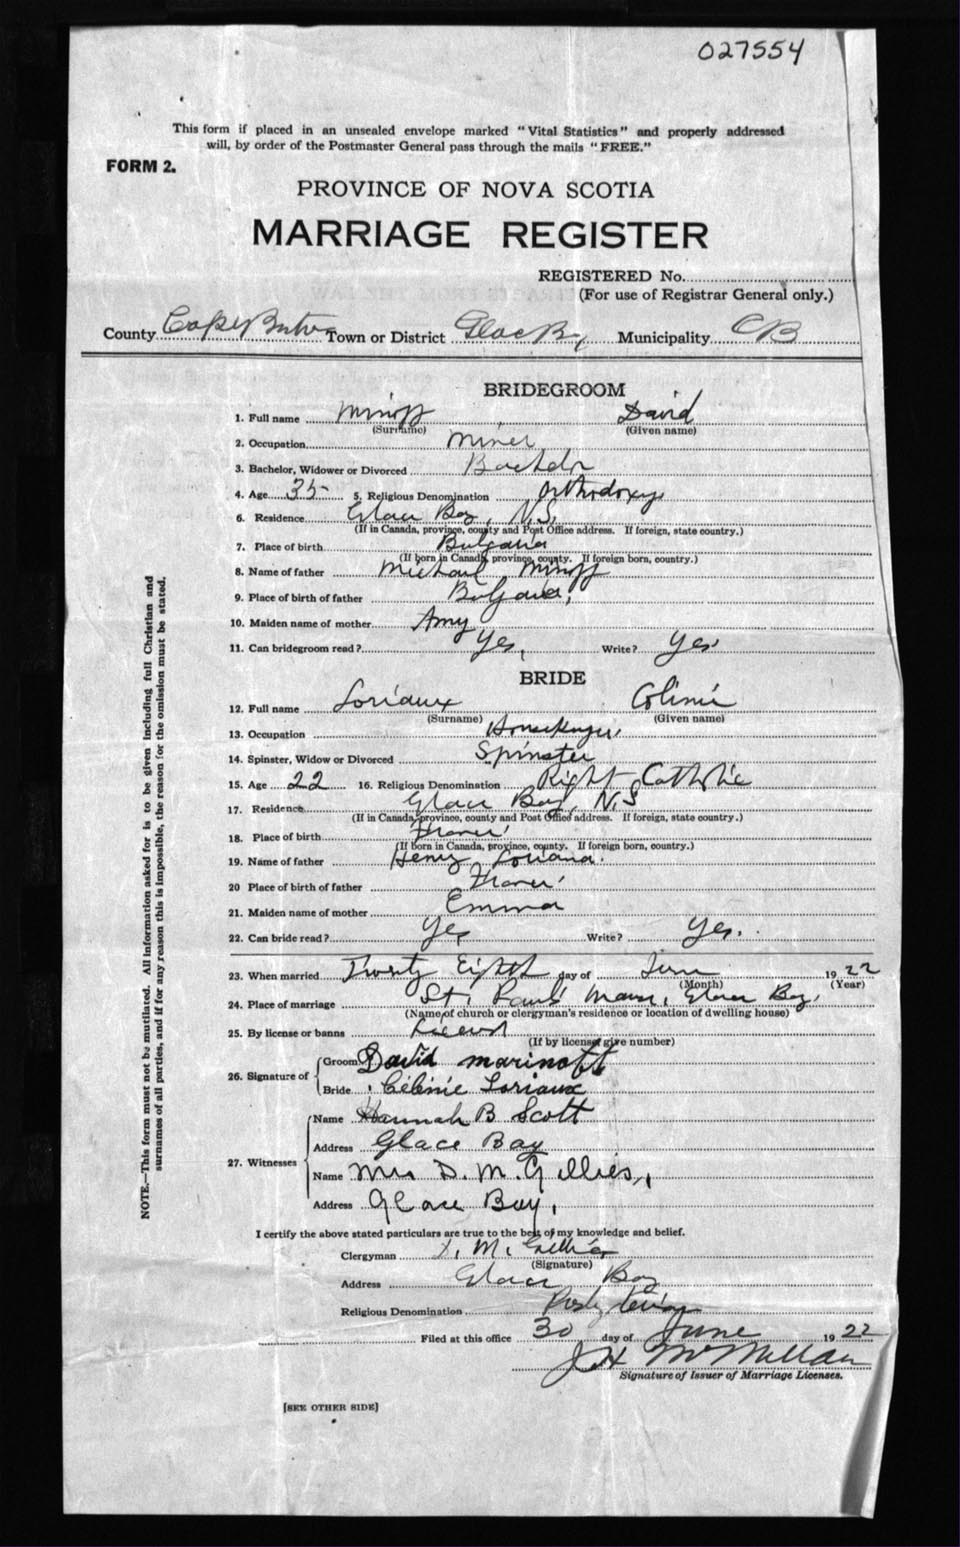 027554
This form if placed in an unsealed envelope marked "Vital Statistics" and properly addressed
will, by order of the Postmaster General pass through the mails "FREE."
FORM 2.
PROVINCE OF NOVA SCOTIA
MARRIAGE REGISTER
REGISTERED No.
(For use of Registrar General only.)
County Cape Breton Town or District Glace Bay Municipality CB
BRIDEGROOM
1. Full name Minoff David
(Surname) (Given name)
2. Occupation Miner
3. Bachelor, Widower or Divorced Bachelor
4. Age 35 5. Religious Denomination Orthodoxys
6. Residence Glace Bay, N.S.
(If in Canada, province, county and Post Office address. If foreign, state country.)
7. Place of birth Bulgaria
(If born in Canada, province, county. If foreign born, country.)
8. Name of father Michael Minoff
9. Place of birth of father Bulgaria,
10. Maiden name of mother Amy
11. Can bridegroom read? Yes, Write? Yes
BRIDE
12. Full name Loriaux
(Surname) (Given name)
13. Occupation Housekeeper
14. Spinster, Widow or Divorced Spinster
15. Age 22 16. Religious Denomination Right Catholic
17. Residence Glace Bay, N.S
(If in Canada, province, county and Post Office address. If foreign, state country.)
18. Place of birth France
(If born in Canada, province, county. If foreign born, country.)
19. Name of father Henry
20 Place of birth of father France
21. Maiden name of mother Emma
22. Can bride read? Yes Write? Yes.
23. When married Twenty Eighth day of June 1922
(Month) (Year)
24. Place of marriage St. Pauls Manse, Glace Bay,
(Name of church or clergyman's residence or location of dwelling house)
25. By license or banns License
(If by license give number)
26. Signature of
Groom David marinoff
Bride Célinie Loriaux
27. Witnesses
Name Hannah B Scott
Address Glace Bay
Name Mrs D. M. Gillies,
Address Glace Bay,
I certify the above stated particulars are true to the best of my knowledge and belief.
Clergyman M. Gillies
(Signature)
Address Glace Bay
Religious Denomination Presbyterian
Filed at this office 30 day of June 1922
J H McMillan
Signature of Issuer of Marriage Licenses.
[SEE OTHER SIDE]
NOTE.—This form must not be mutilated. All information asked for is to be given including full Christian and
surnames of all parties, and if for any reason this is impossible, the reason for the omission must be stated.